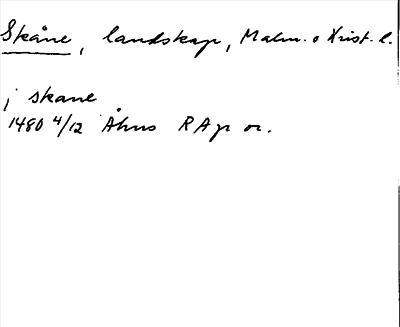 Skåne, landskap, Malm. o Krist. l.
j skane
1480 4/12 Åhus RAp or.